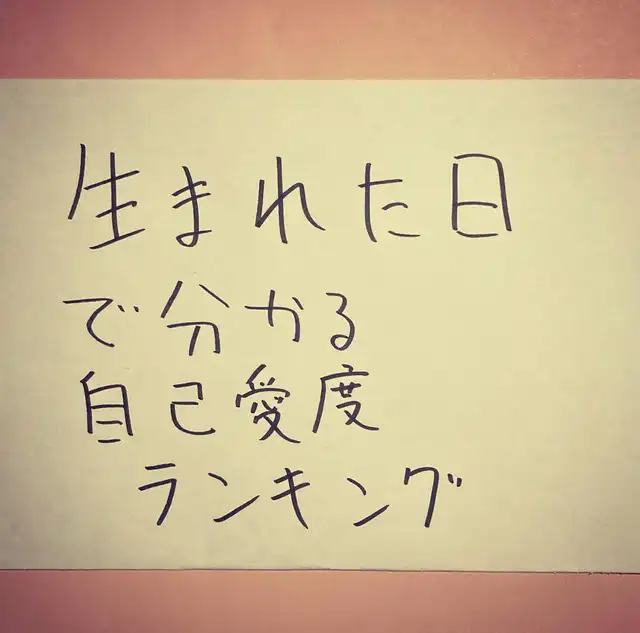 生まれた日
で分かる
自己愛度
ランキング